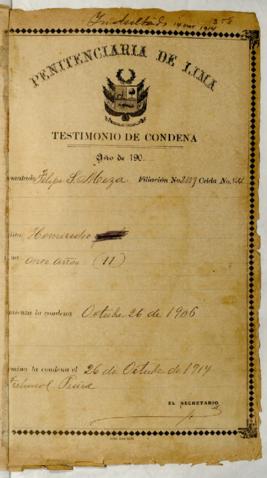 Indultado 14 mar 1914
PENITENCIARIA DE LIMA
TESTIMONIO DE CONDENA
Año de 190
Felipe S. Meza Filiación No. Celda No.
Homicidio
once años (11)
la condena Octubre 26 de 1906
la condena el 26 de Octubre de 1917
Tribunal Piura
EL SECRETARIO